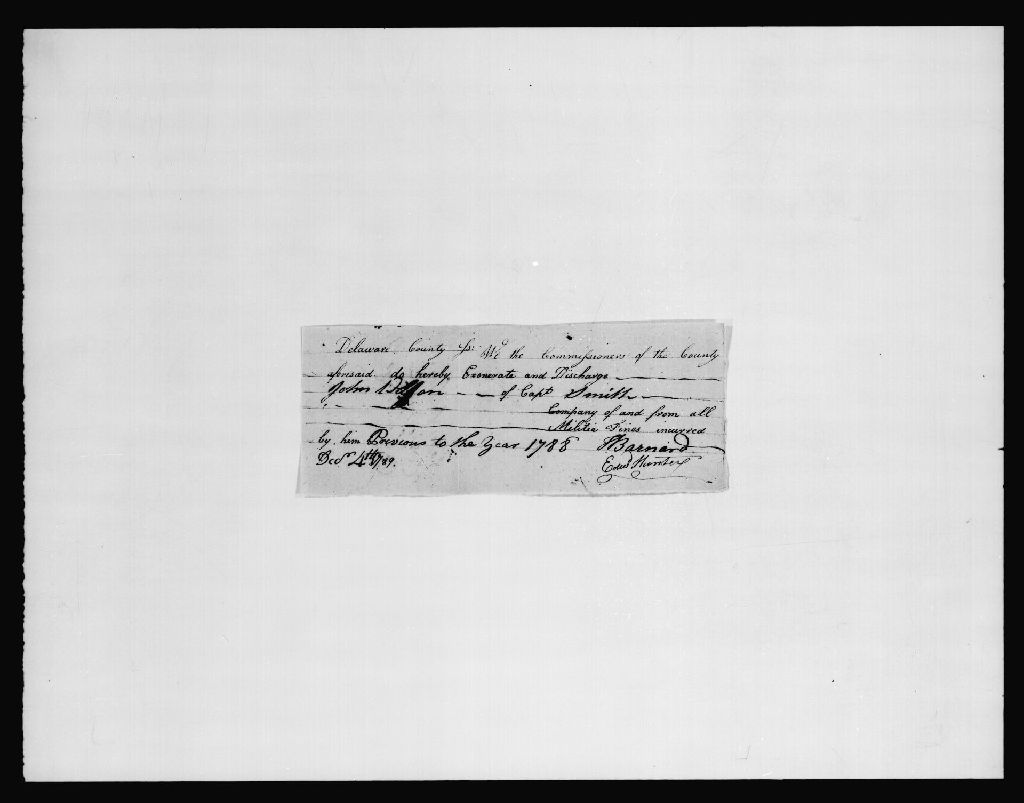 Delaware County Ss: We the Commissioners of the County
aforesaid do hereby Exonerate and Discharge
John of Capt Smith
Company of and from all
Militia Fines incurred
by him Previous to the Year 1788
Decr 4th 1789.
Barnard
Edwd Hunter